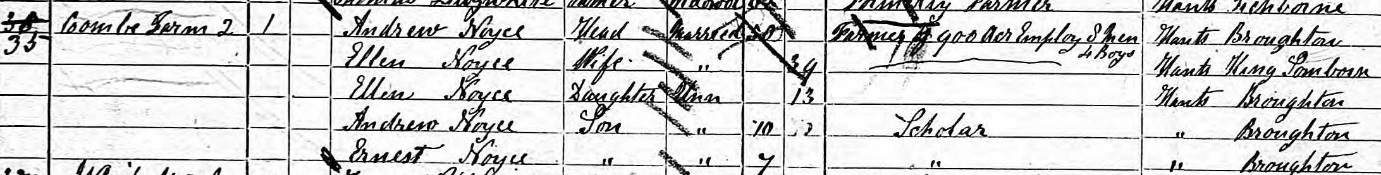 Formerly Farmer Hants
35 Coombe Farm 2 1 Andrew Noyce Head Married 50 Farmer of 900 Acr Employ 8 Men 4 Boys Hants Broughton
Ellen Noyce Wife " 39 Hants King Somborn
Ellen Noyce Daughter Unn 13 Hants Broughton
Andrew Noyce Son " 10 Scholar " Broughton
Ernest Noyce " " 7 " " Broughton